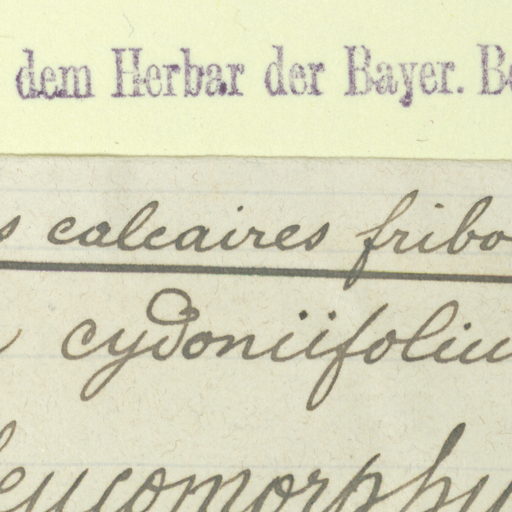 dem Herbar der Bayer. B
s calcaires fribo
cydoniifoliu
leucomorphu